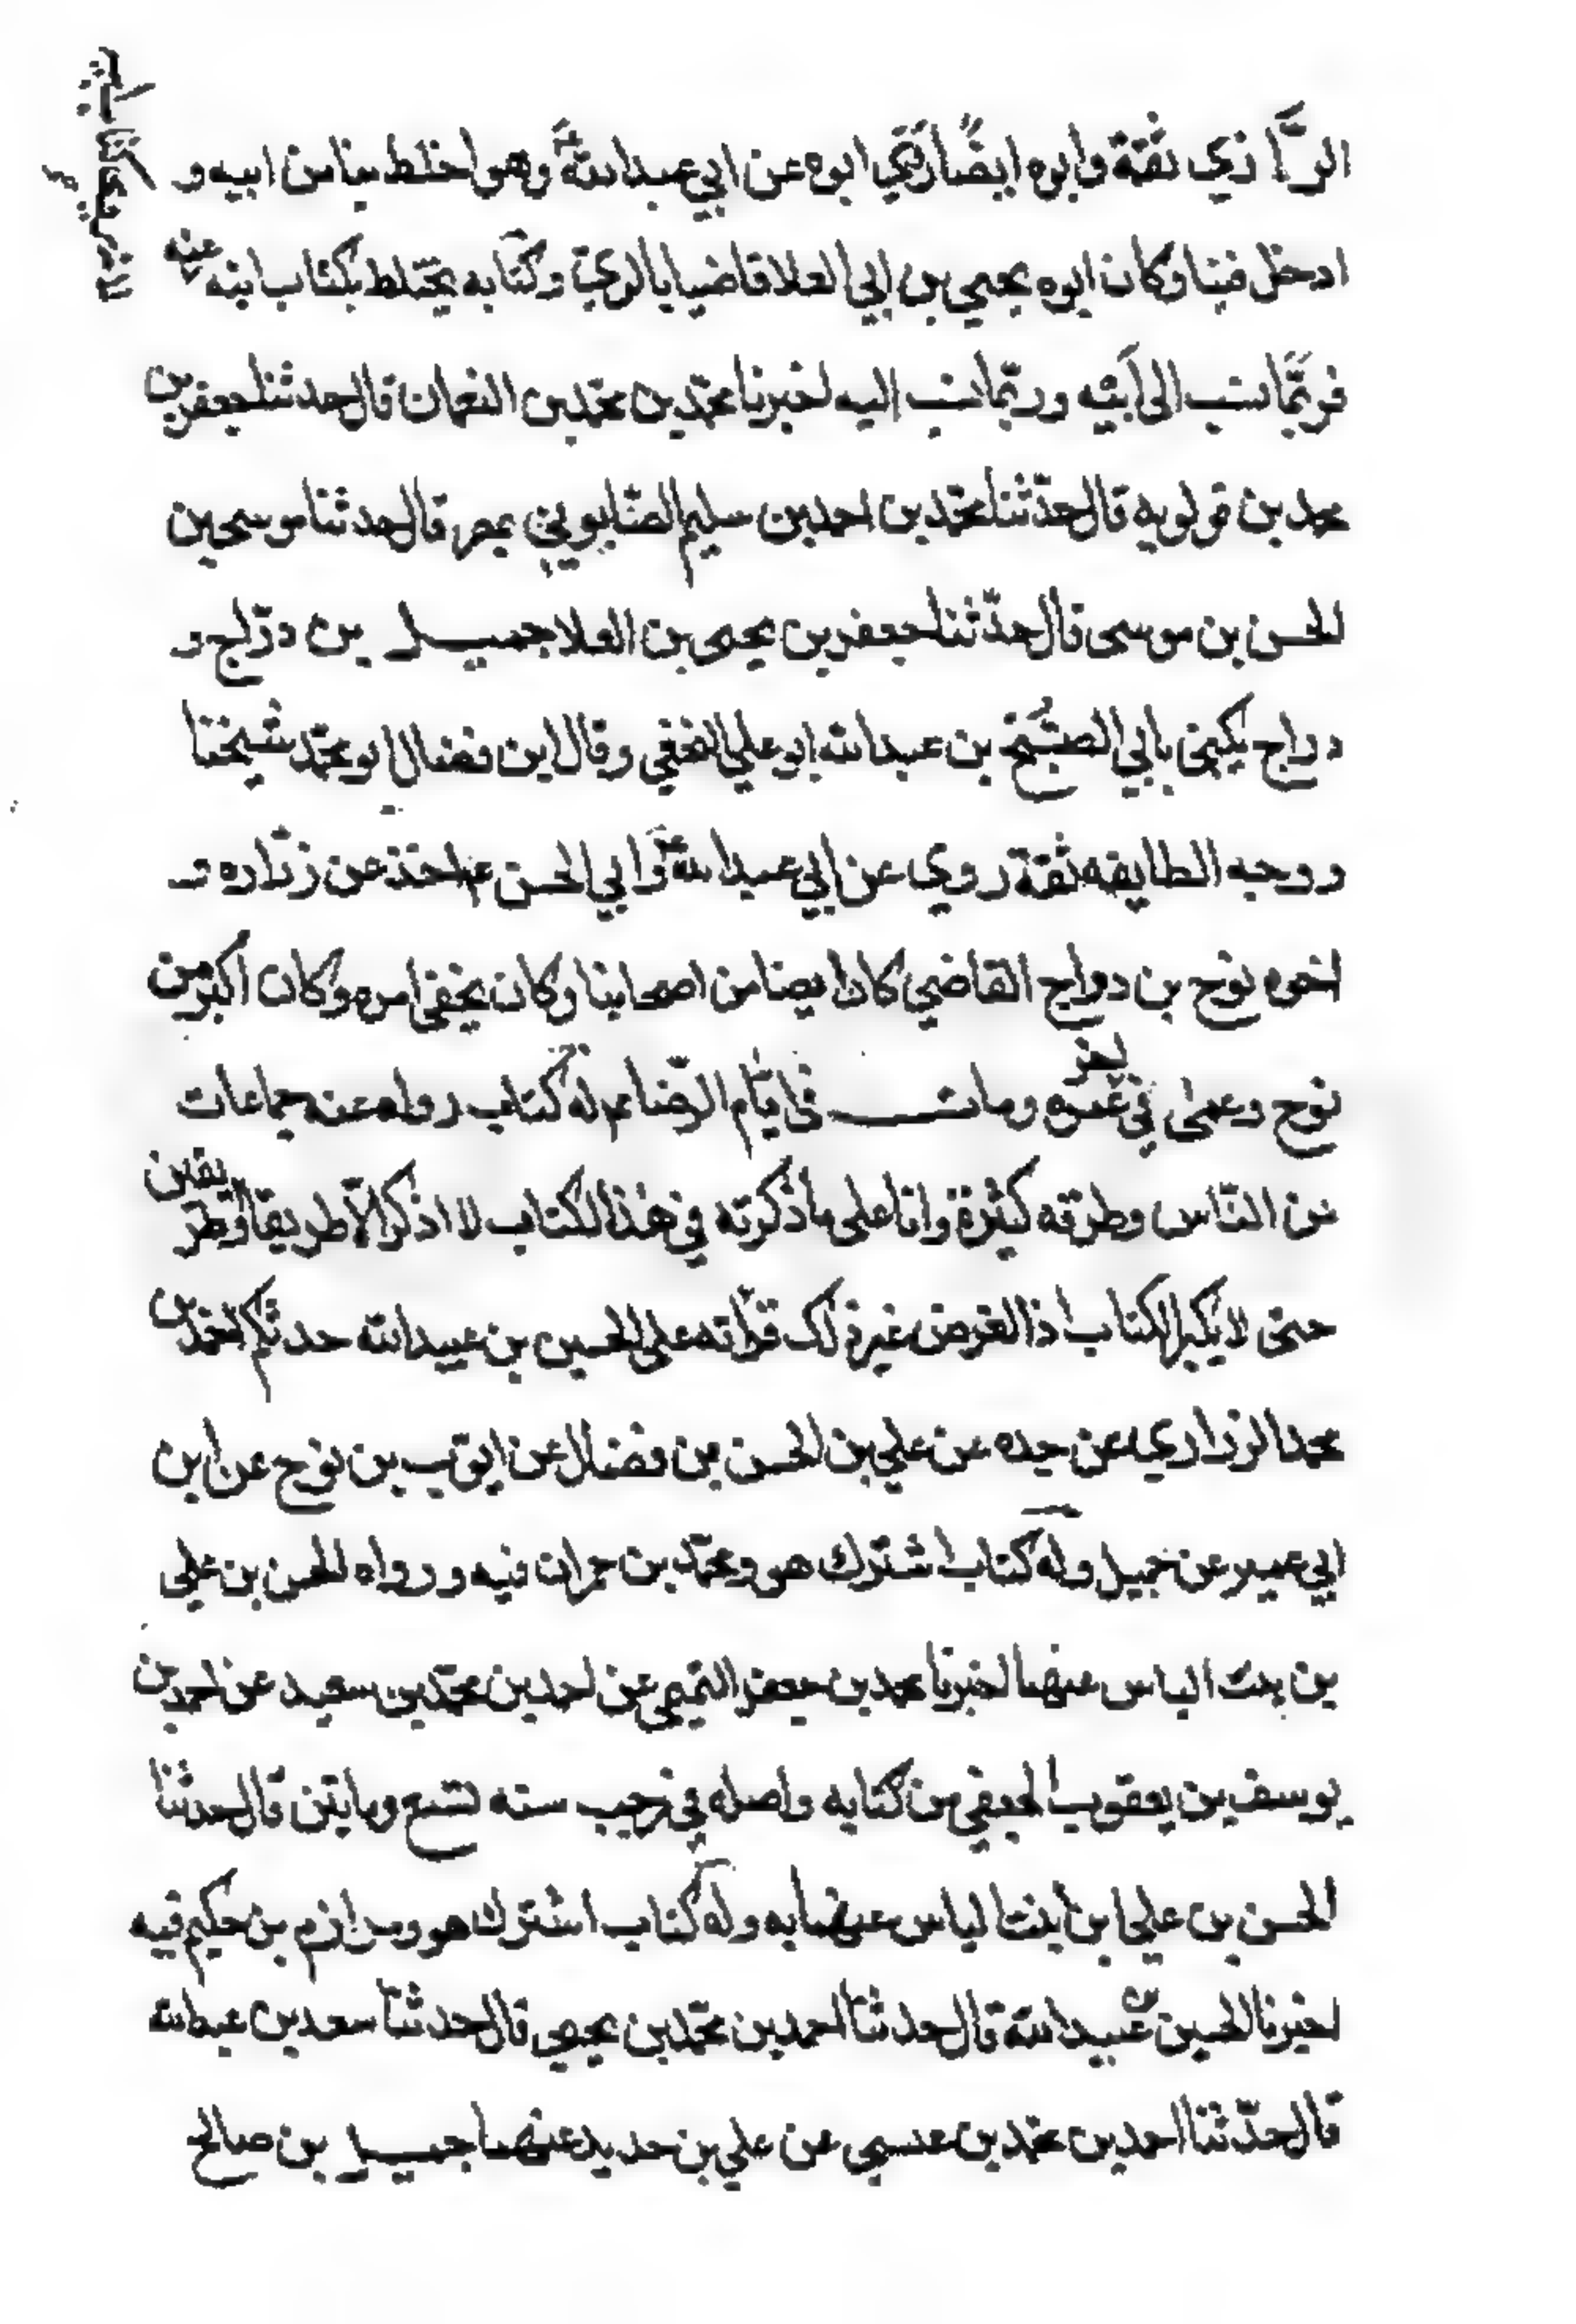 الرَّازي ثقة وابوه ايضًا روي ابوه عن ابي عبدالله ع وهو اخلط بنا من ابيه و
ادخل فينا وكان ابوه يحيى بن ابي العلا قاضيا بالري و كتابه يختلط بكتاب ابنه عنه
فربّما نسب الى أبيه وربّما نسب اليه اخبرنا محمّد بن محمّد بن النعمان قال حدثنا جعفر بن
محمد بن قولويه قال حدّثنا محمّد بن احمد بن سليم الصّابوني بمصر قال حدثنا موسى بن
الحسن بن موسى قال حدّثنا جعفر بن يحيى بن العلا جميل بن درّاج و
دراج يكنى بابي الصُّبَيح بن عبدالله ابو علي النخعي وقال ابن فضال ابو محمّد شيخنا
و وجه الطايفه ثقة روي عن ابي عبدالله ع وابي الحسن ع اخذ عن زراره و
اخوه نوح بن دراج القاضي كان ايضا من اصحابنا وكان يخفي امره وكان اكبر من
نوح وعمى في آخر عمره ومات في ايّام الرّضا ع له كتاب رواه عنه جماعات
من النّاس وطرقه كثيرة وانا على ما ذكرته في هذا الكتاب لا اذكر الّا طريقا او طريقين
حتى لا يكبر الكتاب اذ الغرض غير ذلك قراته على الحسين بن عبيدالله حدثكم احمد بن
محمد الزراري عن جده عن علي بن الحسن بن فضال عن ايّوب بن نوح عن ابن
ابي عمير عن جميل وله كتاب اشترك هو ومحمّد بن حمران فيه و رواه الحسن بن علي
بن بنت الياس عنهما اخبرنا محمد بن جعفر التميمي عن احمد بن محمّد بن سعيد عن احمد بن
يوسف بن يعقوب الجعفي من كتابه واصله في رجب سنه تسع ومايتين قال حدثنا
الحسن بن علي ابن بنت الياس عنهما به وله كتاب اشترك هو ومرازم بن حكيم فيه
اخبرنا الحسين بن عبيدالله قال حدثنا احمد بن محمّد بن يحيى قال حدثنا سعد بن عبدالله
قال حدّثنا احمد بن محمّد بن عيسى عن علي بن حديد عنهما جميل بن صالح